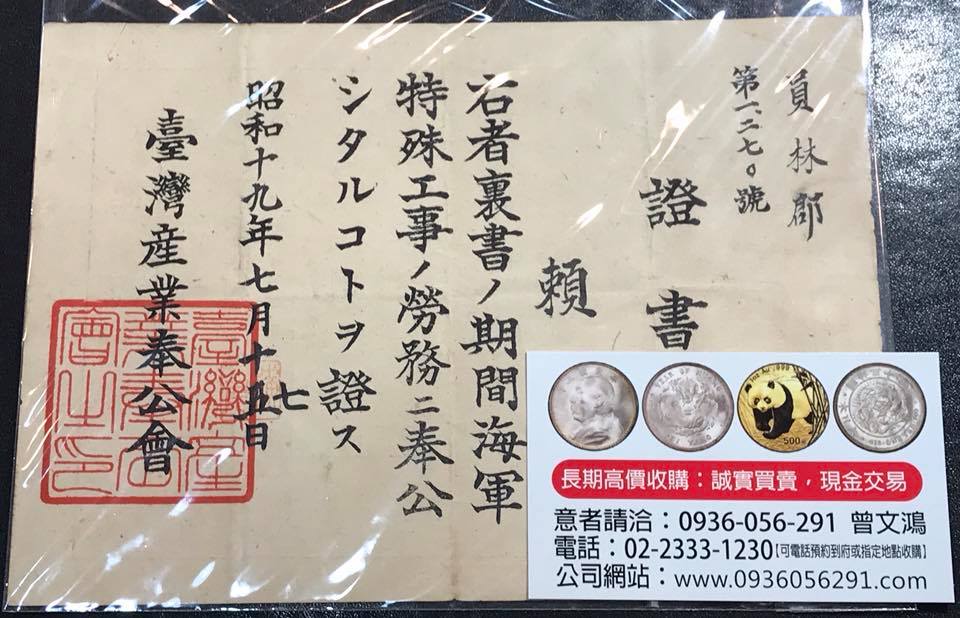 員林郡
第一、二七〇號
證書
賴
右者裏書ノ期間海軍
特殊工事ノ勞務ニ奉公
シタルコトヲ證ス
昭和十九年七月十五日
七
臺灣産業奉公會
臺灣産
業奉公
會之印
長期高價收購：誠實買賣，現金交易
意者請洽：0936-056-291 曾文鴻
電話：02-2333-1230【可電話預約到府或指定地點收購】
公司網站：www.0936056291.com